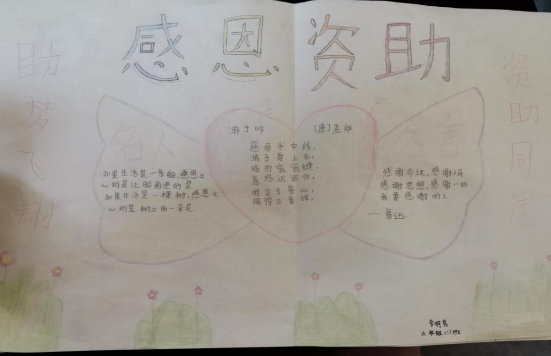 感恩资助
助梦飞翔
资助同
名人
名言
游子吟 [唐]孟郊
慈母手中线,
游子身上衣。
临行密密缝,
意恐迟迟归。
谁言寸草心,
报得三春晖。
如果生活是一条船,感恩之
心则是让船前进的桨
如果生活是一棵树,感恩之
心则是树上的一朵花
感谢命运,感谢人民
感谢思想,感谢一切
我要感谢的人
—鲁迅
六年级(1)班